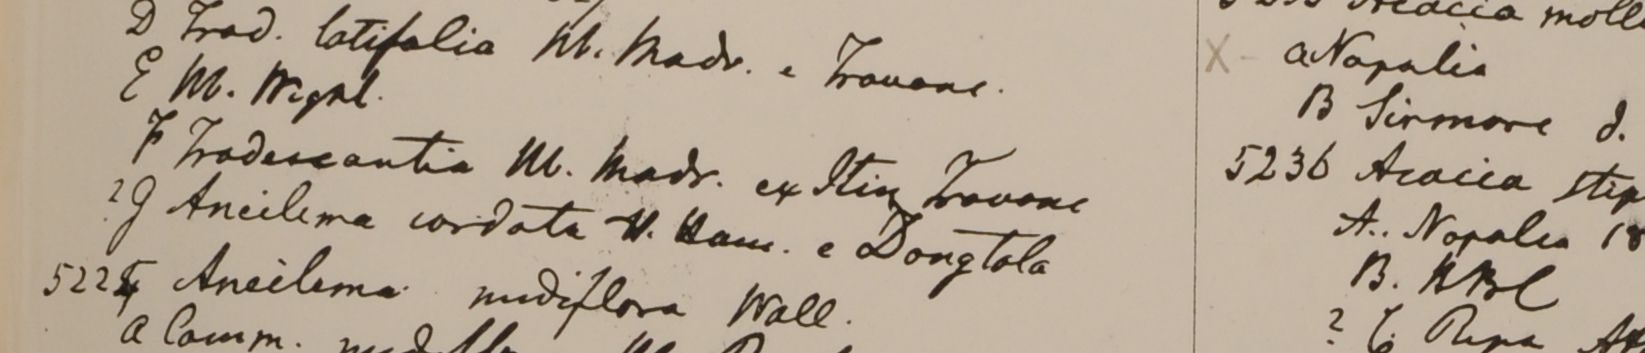 D Trad. latifolia M. Madr. e Travanc.
E M. Wight.
F Tradescantia M. Madr. ex Itin Travanc
?G Aneilema cordata H. Ham. e Dongtola
5224 Aneilema nudiflora Wall.
a Comm.
Acacia moll
X - a Napalia
B Sirmore d.
5236 Acacia stip
A. Napalia
B. HBC
? C Ripa